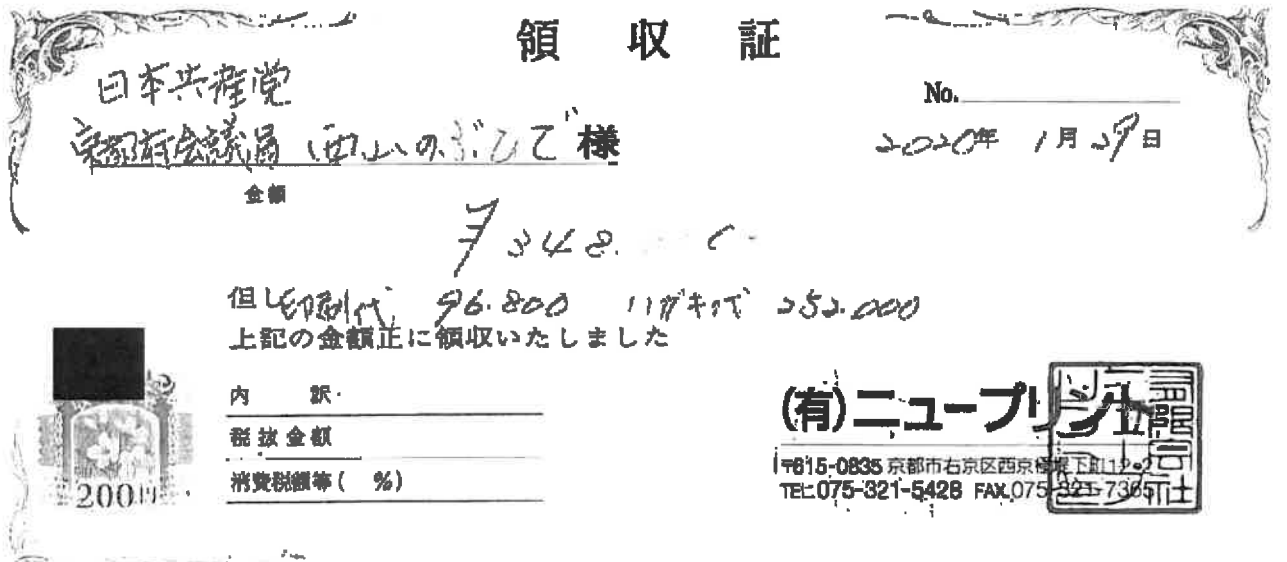 領収証
日本共産党
No.
京都府会議員 西山のぶひで 様
2020年 1月29日
金額
¥348.
但し印刷代 96.800 ハガキ代 252.000
上記の金額正に領収いたしました
内 訳
税抜金額
消費税額等( %)
200円
(有)ニュープリント
〒615-0835 京都市右京区西京極堤下町
TEL 075-321-5428 FAX 075-321-7365